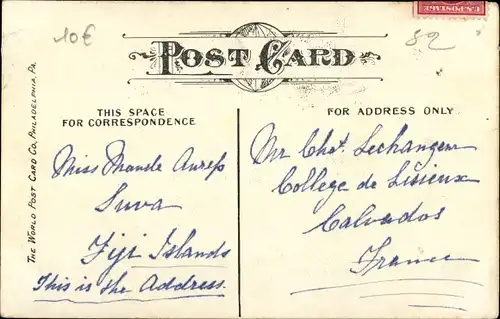 10€
U.S. POSTAGE
82
POST CARD
THIS SPACE
FOR CORRESPONDENCE
FOR ADDRESS ONLY
THE WORLD POST CARD CO. PHILADELPHIA, PA.
Miss Maude
Suva
Fiji Islands
This is the Address.
Mr Chas. Lechangeur
College de Lisieux
Calvados
France